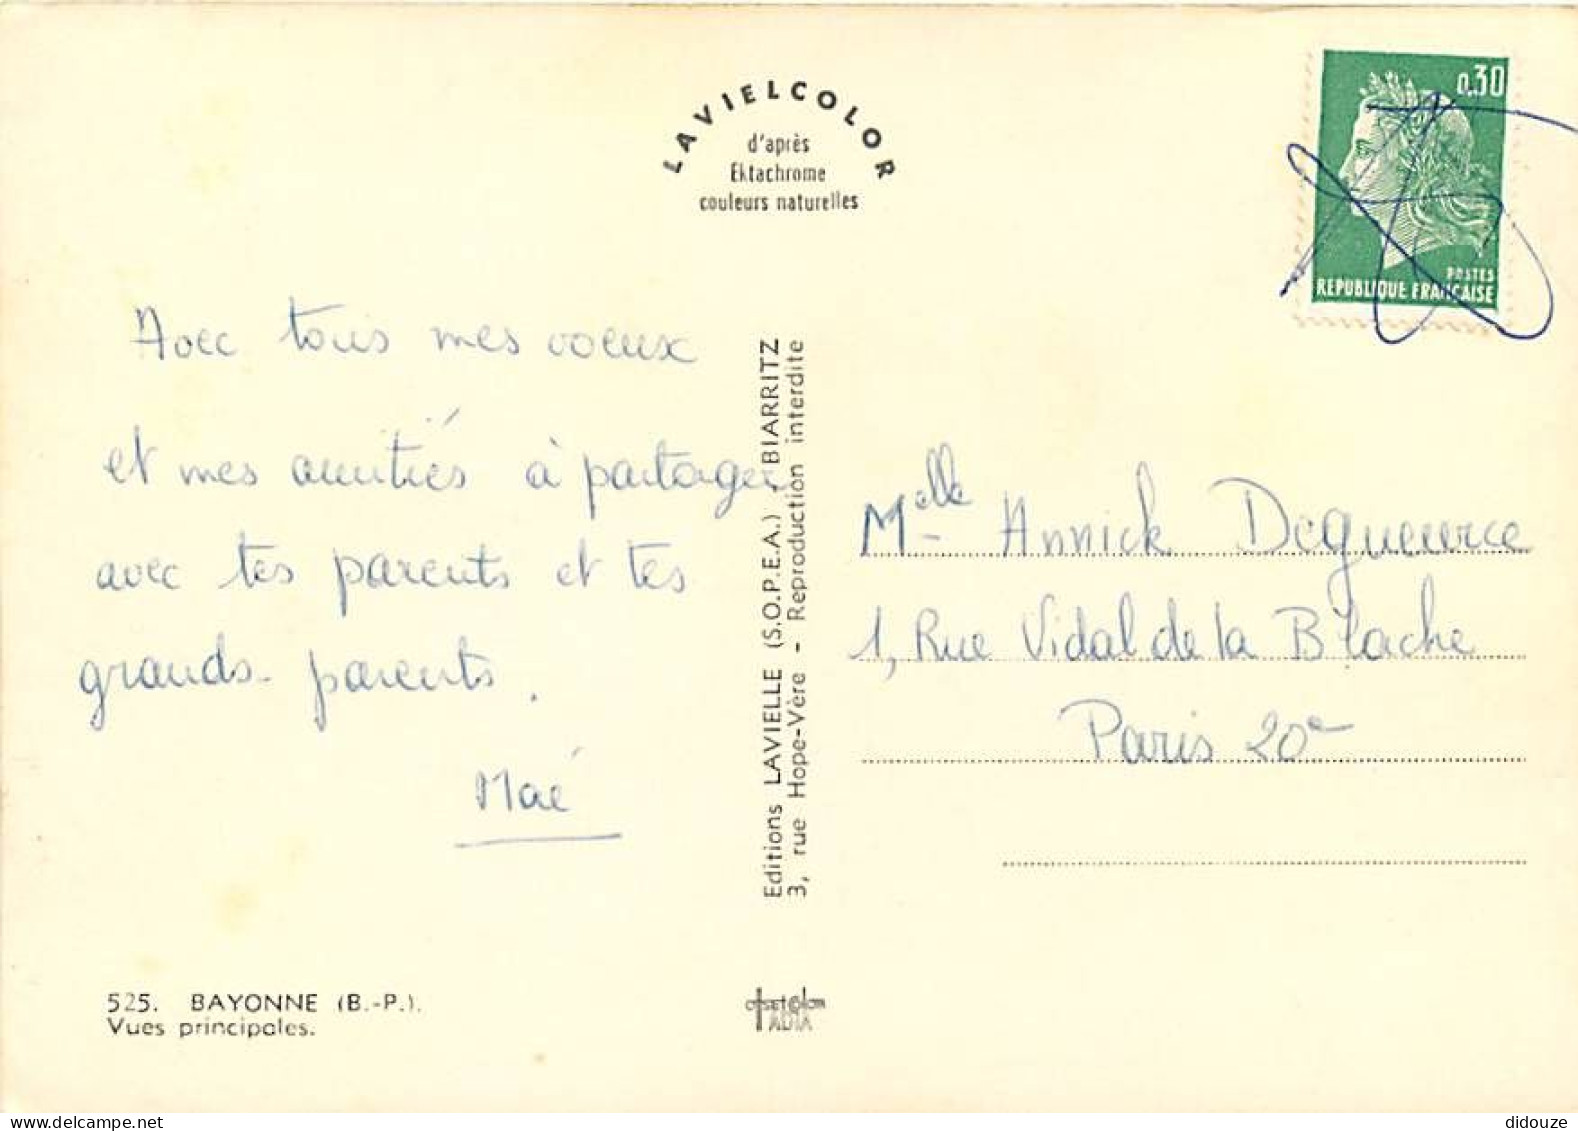 LAVIELCOLOR
d'après
Ektachrome
couleurs naturelles
0,30
POSTES
REPUBLIQUE FRANÇAISE
Avec tous mes voeux
et mes amitiés à partager
avec tes parents et tes
grands-parents.
Maé
Editions LAVIELLE (S.O.P.E.A.) - BIARRITZ
3, rue Hope-Vère - Reproduction interdite
Melle Annick
1, Rue Vidal de la Blache
Paris 20e
525. BAYONNE (B.-P.).
Vues principales.
didouze